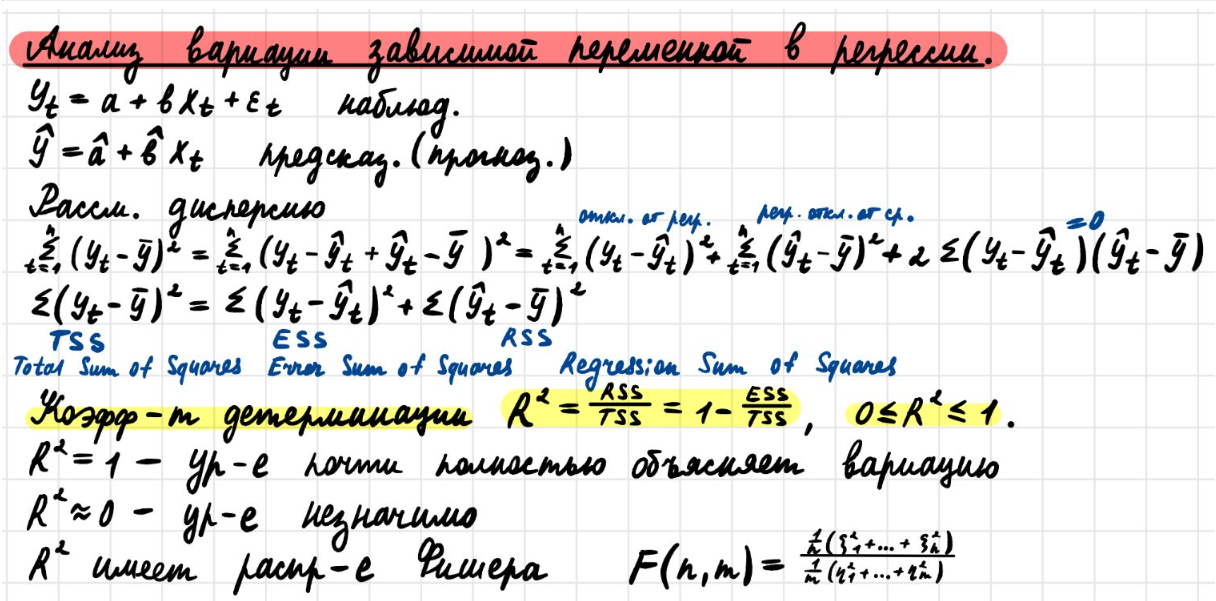 Анализ вариации зависимой переменной в регрессии.
y_t = a + b x_t + ε_t наблюд.
ŷ = â + b̂ x_t предсказ. (прогноз.)
Рассм. дисперсию
откл. от регр. регр. откл. от ср. =0
∑_{t=1}^{n} (y_t − ȳ)² = ∑_{t=1}^{n} (y_t − ŷ_t + ŷ_t − ȳ)² = ∑_{t=1}^{n} (y_t − ŷ_t)² + ∑_{t=1}^{n} (ŷ_t − ȳ)² + 2 ∑(y_t − ŷ_t)(ŷ_t − ȳ)
∑(y_t − ȳ)² = ∑(y_t − ŷ_t)² + ∑(ŷ_t − ȳ)²
TSS ESS RSS
Total Sum of Squares Error Sum of Squares Regression Sum of Squares
Коэфф-т детерминации R² = RSS/TSS = 1 − ESS/TSS, 0 ≤ R² ≤ 1.
R² = 1 − ур-е почти полностью объясняет вариацию
R² ≈ 0 − ур-е незначимо
R² имеет распр-е Фишера F(n,m) = (1/n (ξ₁² + ... + ξₙ²)) / (1/m (η₁² + ... + ηₘ²))